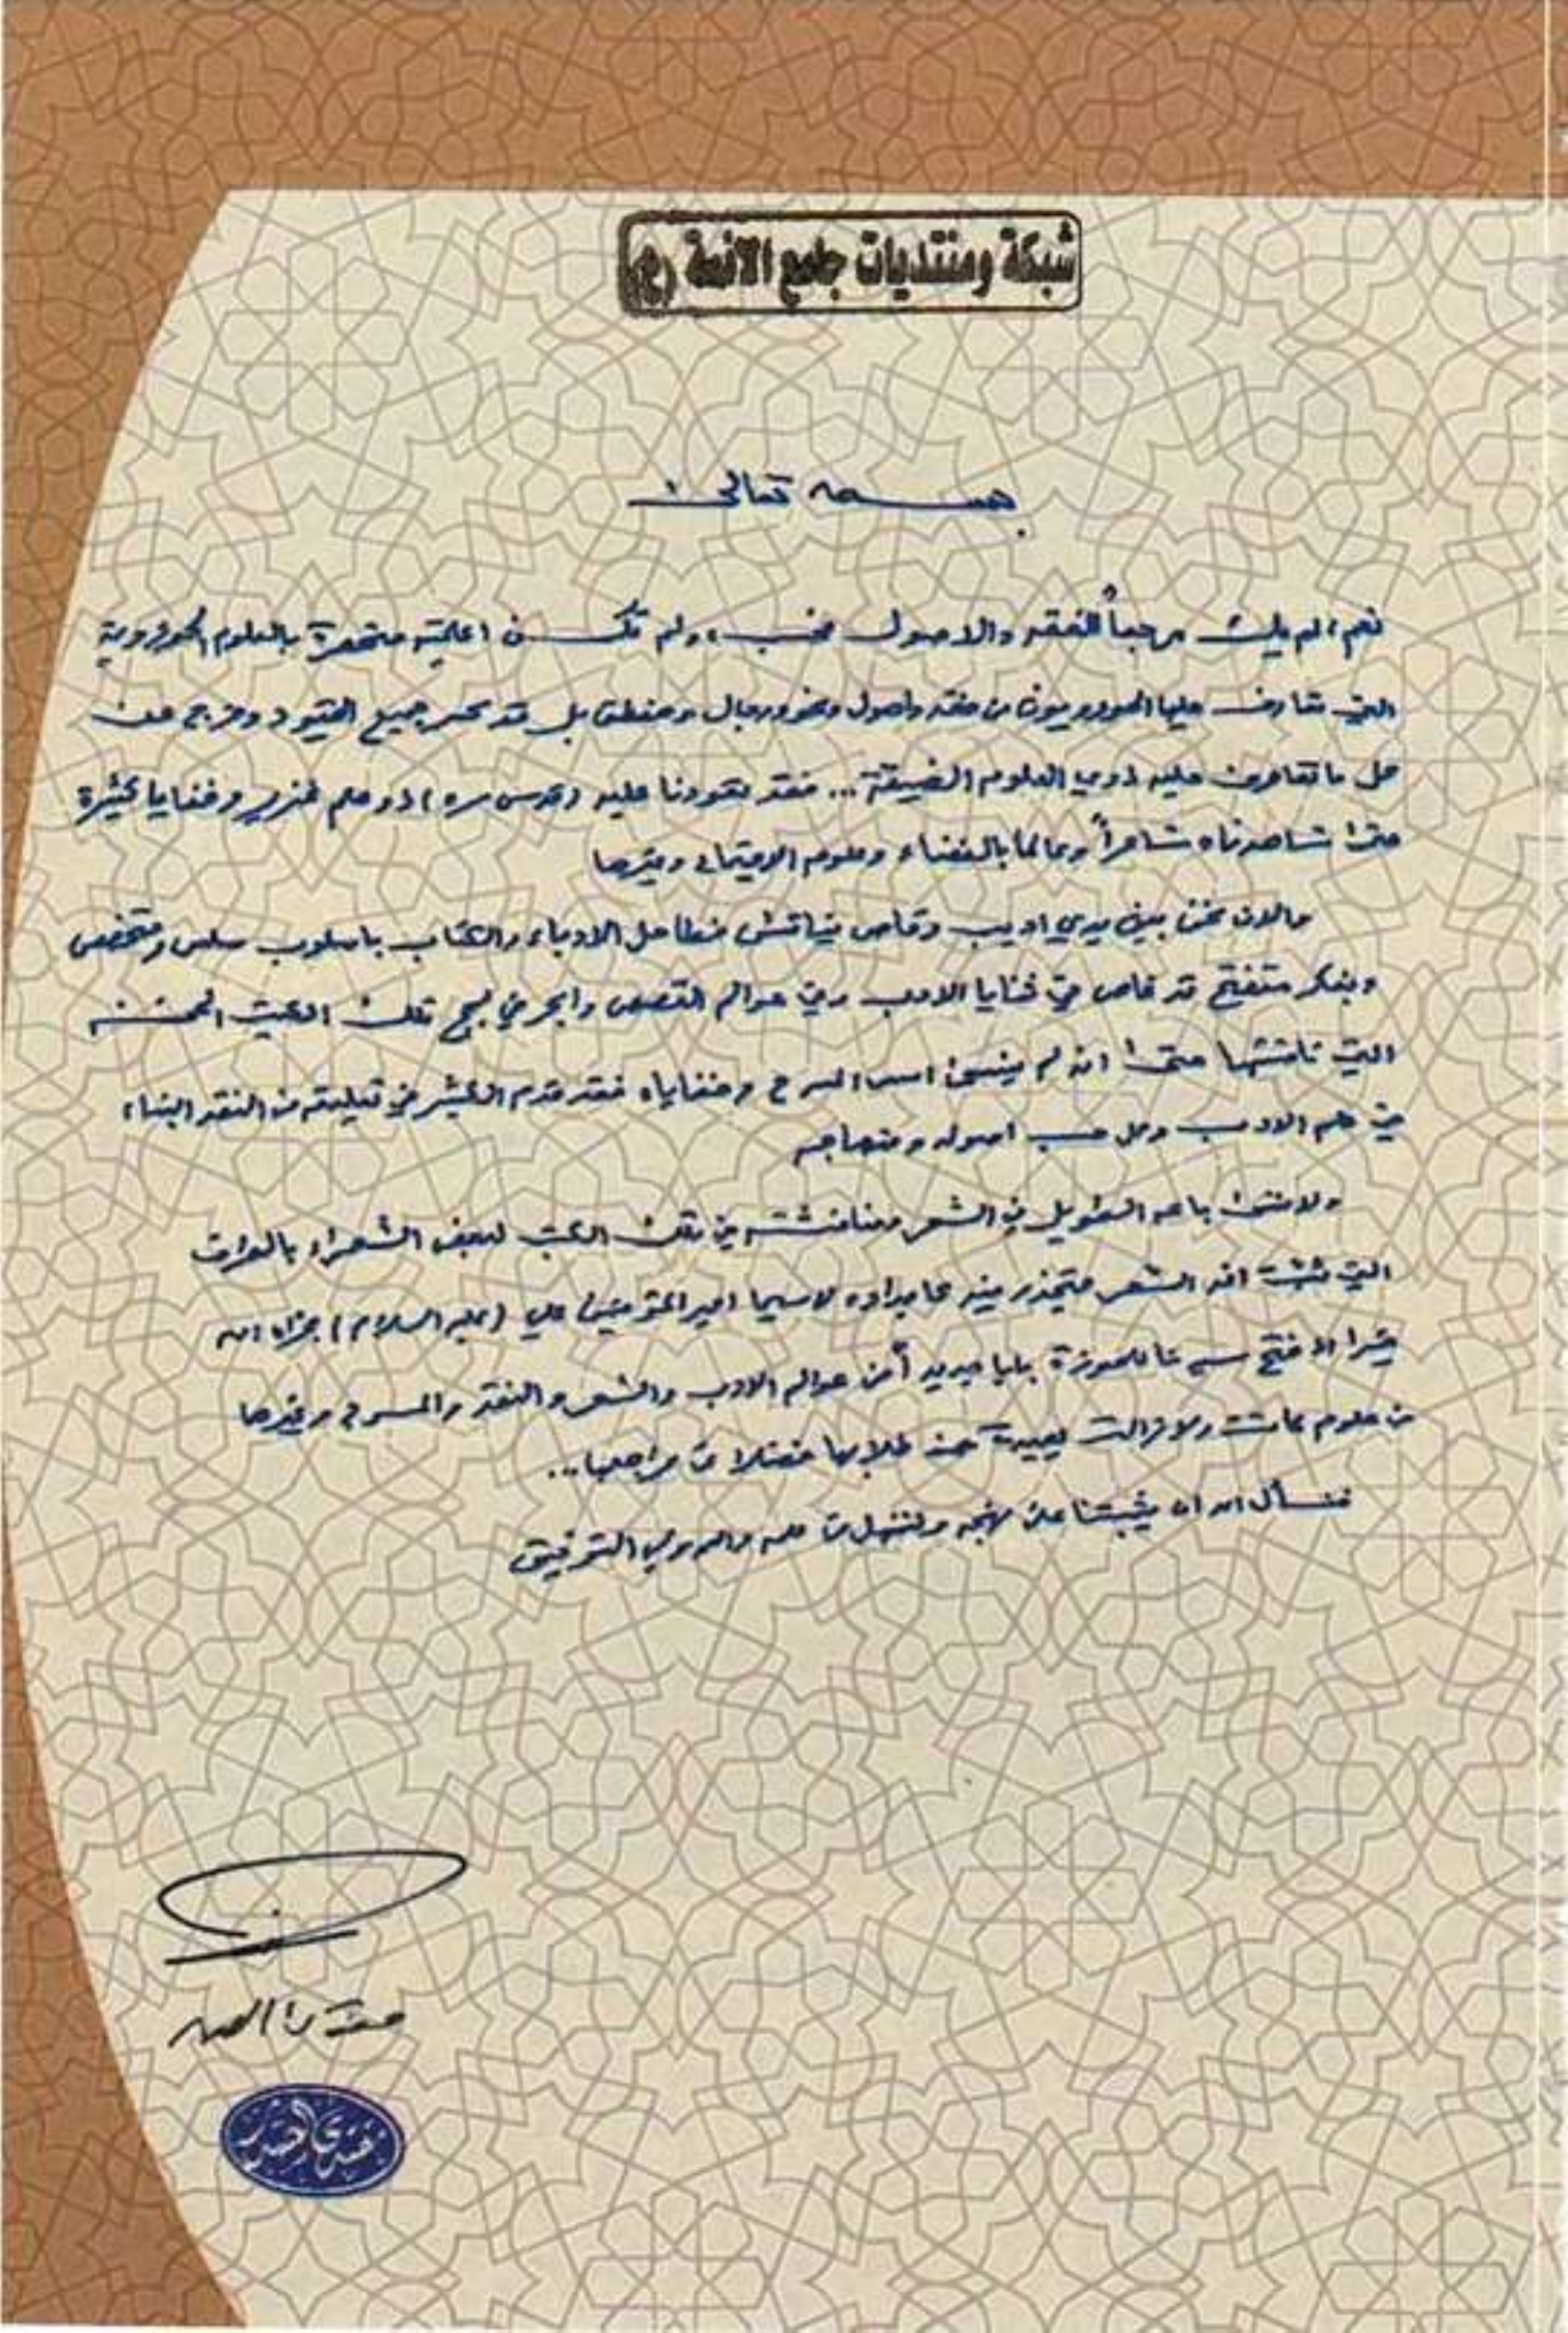 شبكة ومنتديات جامع الائمة (ع)
بسمه تعالى
نعم، لم يك مرجعاً للفقه والاصول فحسب، ولم تكن اعلميته منحصرة بالعلوم الحوزوية
التي تعارف عليها الحوزويون من فقه واصول ونحو ورجال ومنطق بل قد كسر جميع القيود وخرج عن
كل ما تعارف عليه ذوي العلوم الضيقة... فقد تعودنا عليه (قدس سره) ذو علم غزير وخفايا كثيرة
حتى شاهدناه شاعراً وعالماً بالفضاء وعلوم الاجتماع وغيرها
والان نحن بين يدي اديب وقاص يناقش فطاحل الادباء والكتاب باسلوب سلس ومتخصص
وبفكر متفتح قد غاص في ثنايا الادب وفي عوالم القصص وابحر في لجج تلك الكتب
التي ناقشها حتى انه لم ينسى اسس المسرح وخفاياه فقد قدم الكثير في تعليقه من النقد البناء
في علم الادب وعلى حسب اصوله ومنهاجه
ولا ننسى باعه الطويل في الشعر ومناقشته في تلك الكتب لبعض الشعراء بالعراق
التي تثبت ان الشعر متجذر فيه كأجداده لاسيما امير المؤمنين علي (عليه السلام) جزاه الله
خيرا اذ فتح للحوزة بابا جديداً من عوالم الادب والشعر والنقد والمسرح وغيرها
من علوم كانت ولازالت بعيدة عن طلابها فضلا عن مراجعها...
فنسأل الله ان يثبتنا على نهجه ولننهل من علمه والله ولي التوفيق
مقتدى الصدر
مقتدى الصدر